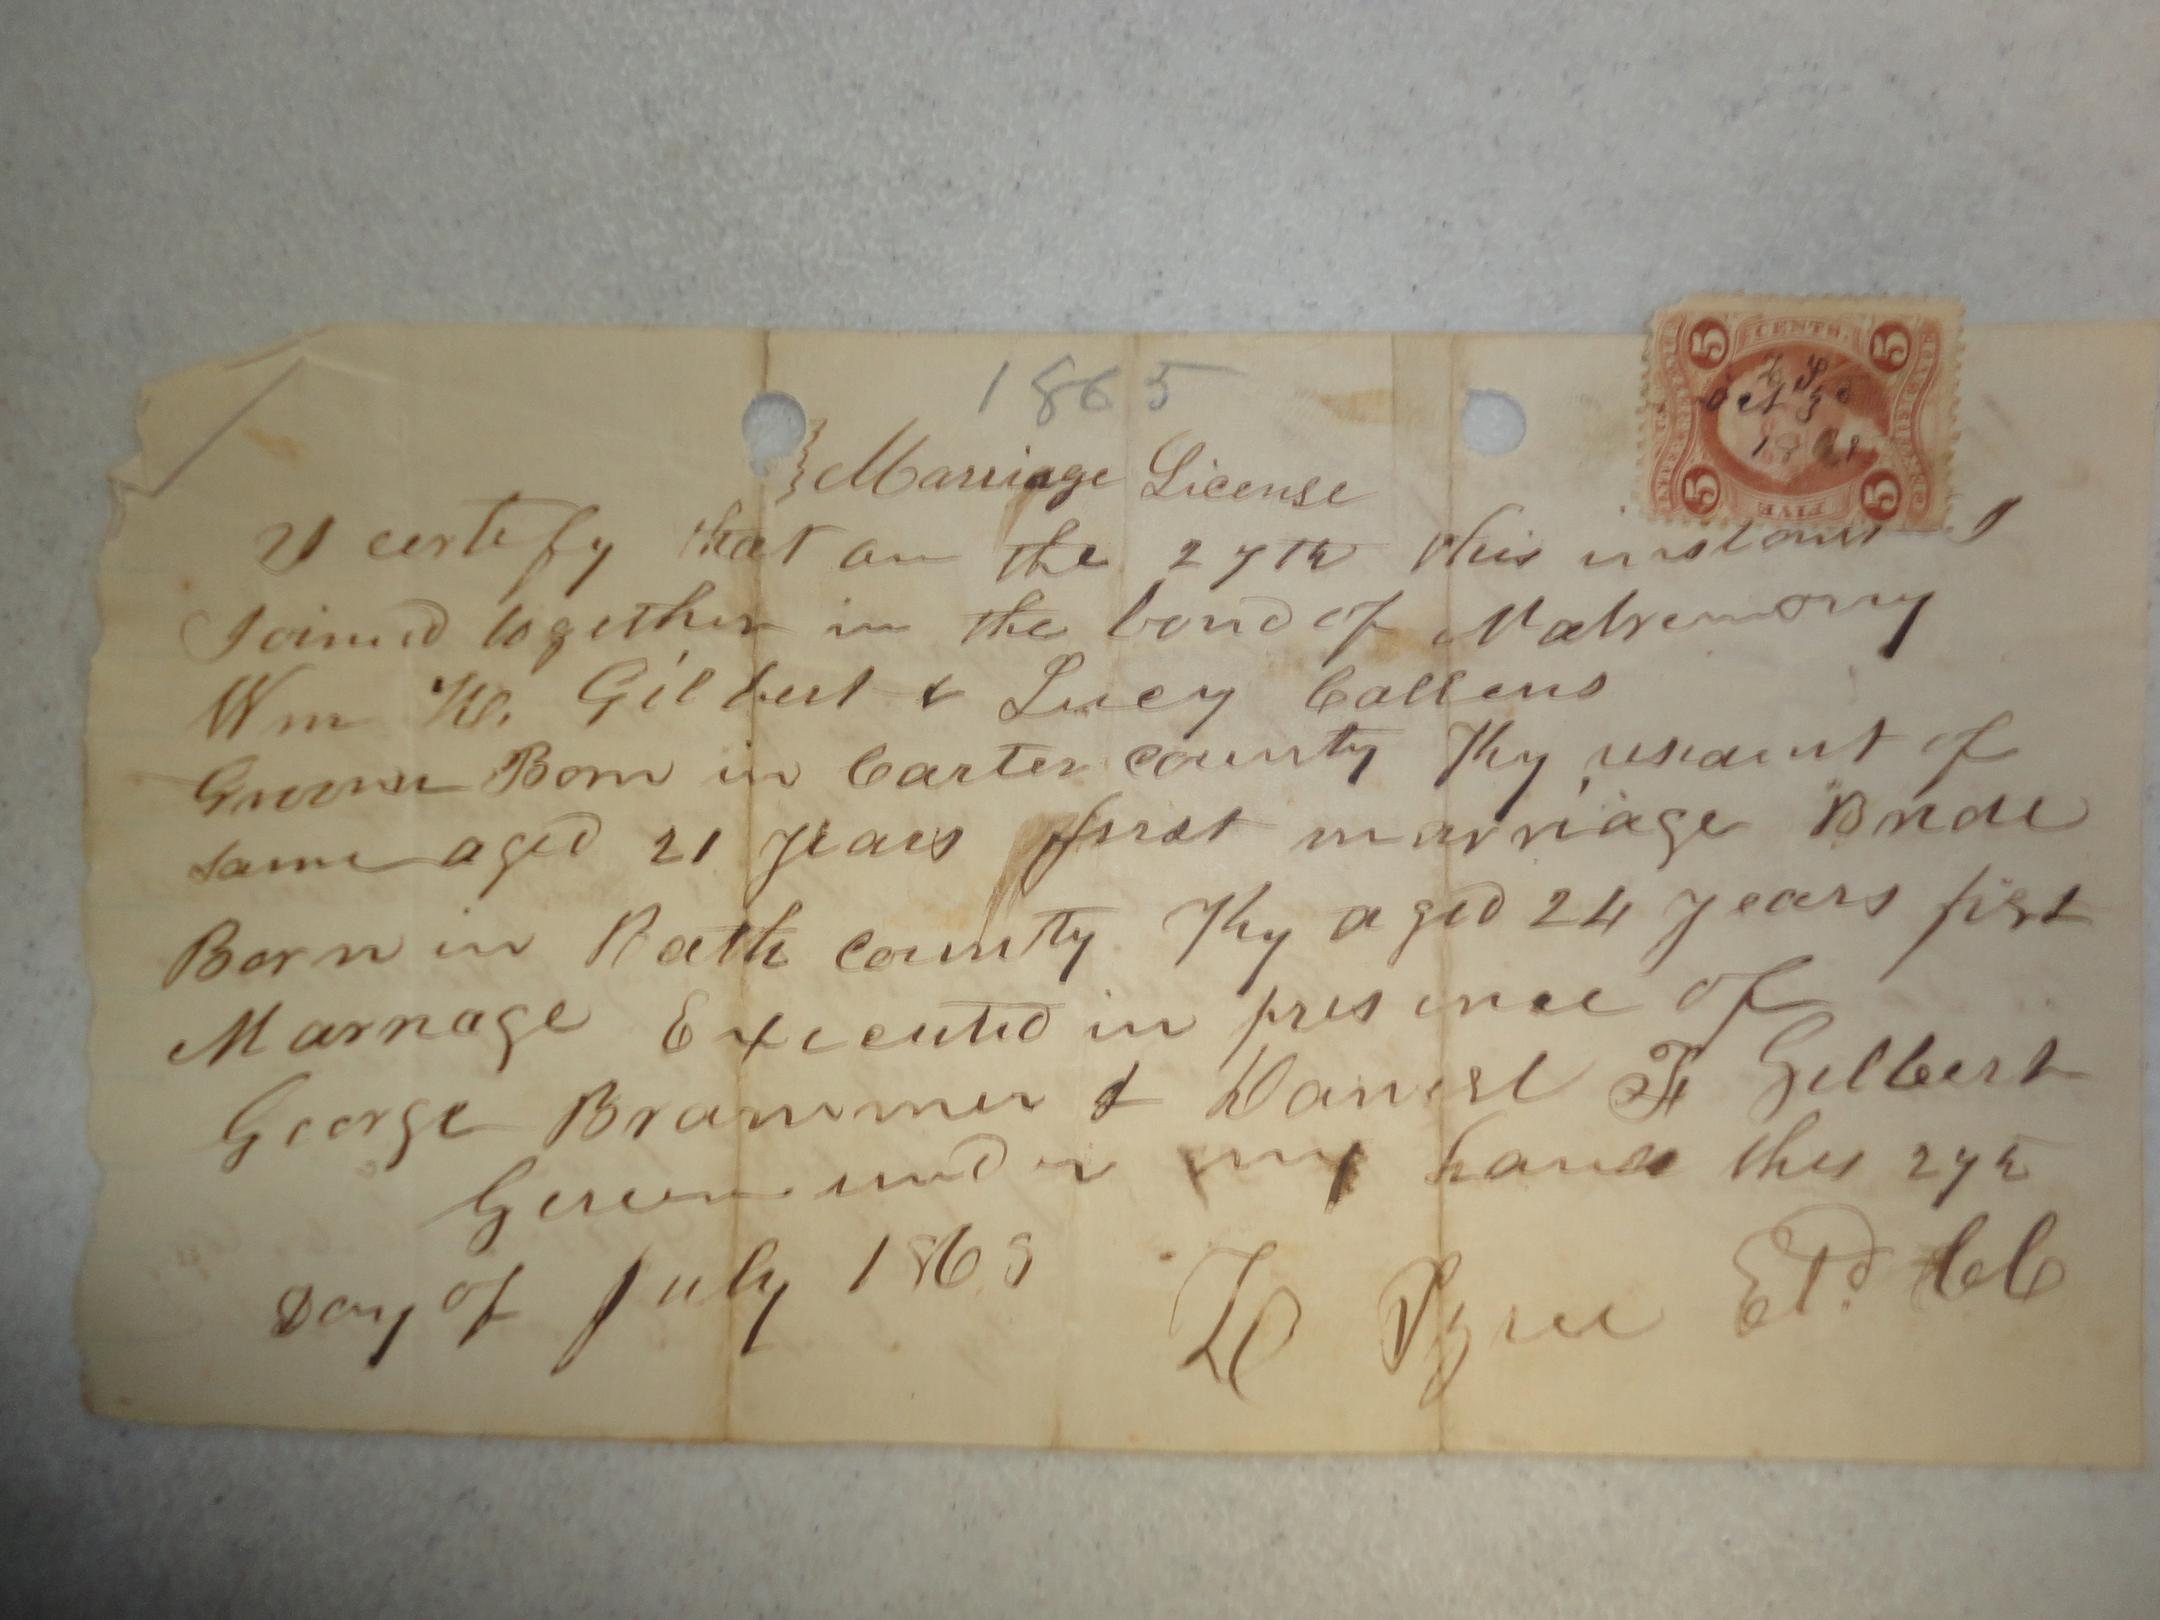 1865
5 CENTS. 5
Oct 3
18
5 FIVE 5
Marriage License
I certify that on the 27th this instant I
Joined together in the bond of Matremony
Wm H. Gilbert & Lucy Callens
Groom Born in Carter County Ky of
same aged 21 years first marriage Bride
Born in Bath County Ky aged 24 years first
Marriage Executed in presence of
George Brammer & Daniel F Gilbert
Given under my hand this 27th
Day of July 186